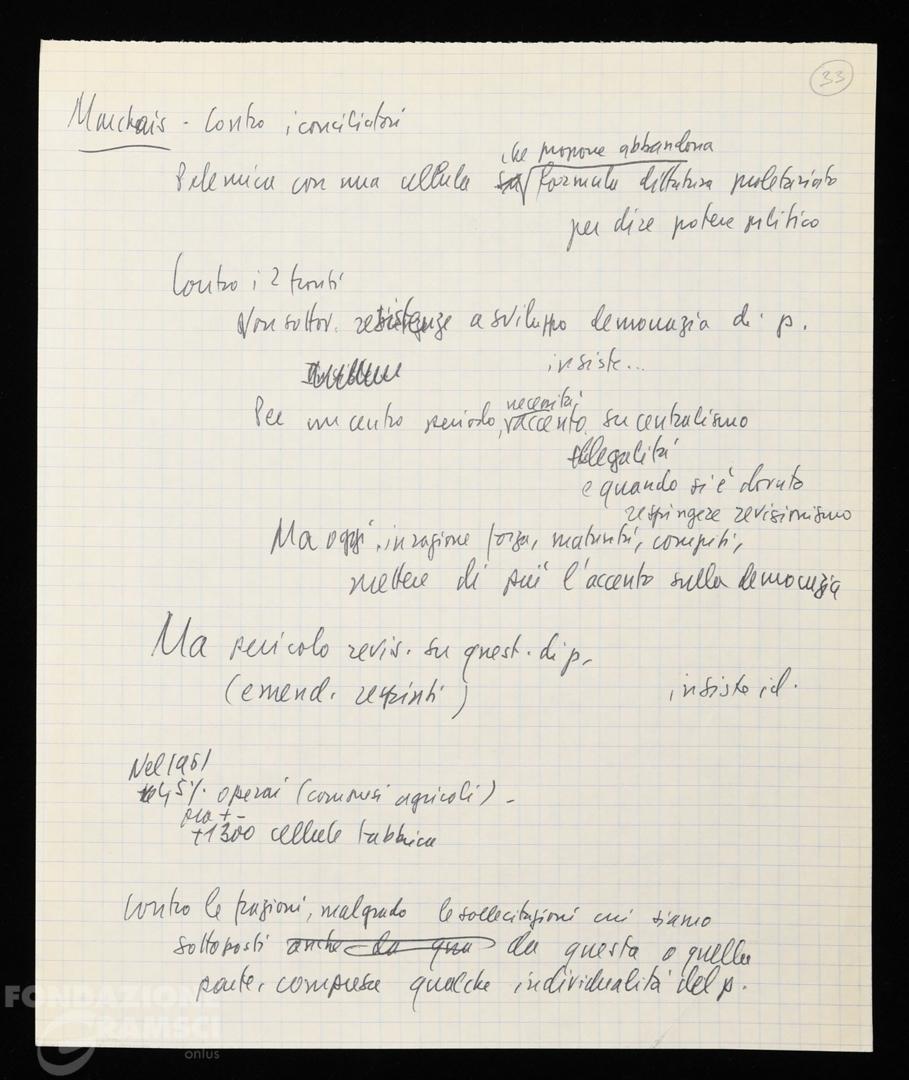 33
Marchais - Contro i conciliatori
che propone abbandona
Polemica con una cellula su formula dittatura proletariato
per dire potere politico
Contro i 2 fronti
Non sottov. resistenze a sviluppo democrazia di p.
insiste...
necessità
Per un certo periodo, accento su centralismo
illegalità
e quando si è dovuto
respingere revisionismo
Ma oggi, in ragione forza, maturità, compiti,
mettere di più l'accento sulla democrazia
Ma pericolo revis. su quest. di p.
(emend. respinti)
insiste id.
Nel 1961
45% operai (compresi agricoli) -
ora + -
+1300 cellule fabbrica
Contro le frazioni, malgrado le sollecitazioni cui siamo
sottoposti anche da qua da questa o quella
parte, compresa qualche individualità del p.
FONDAZIONE
GRAMSCI
onlus